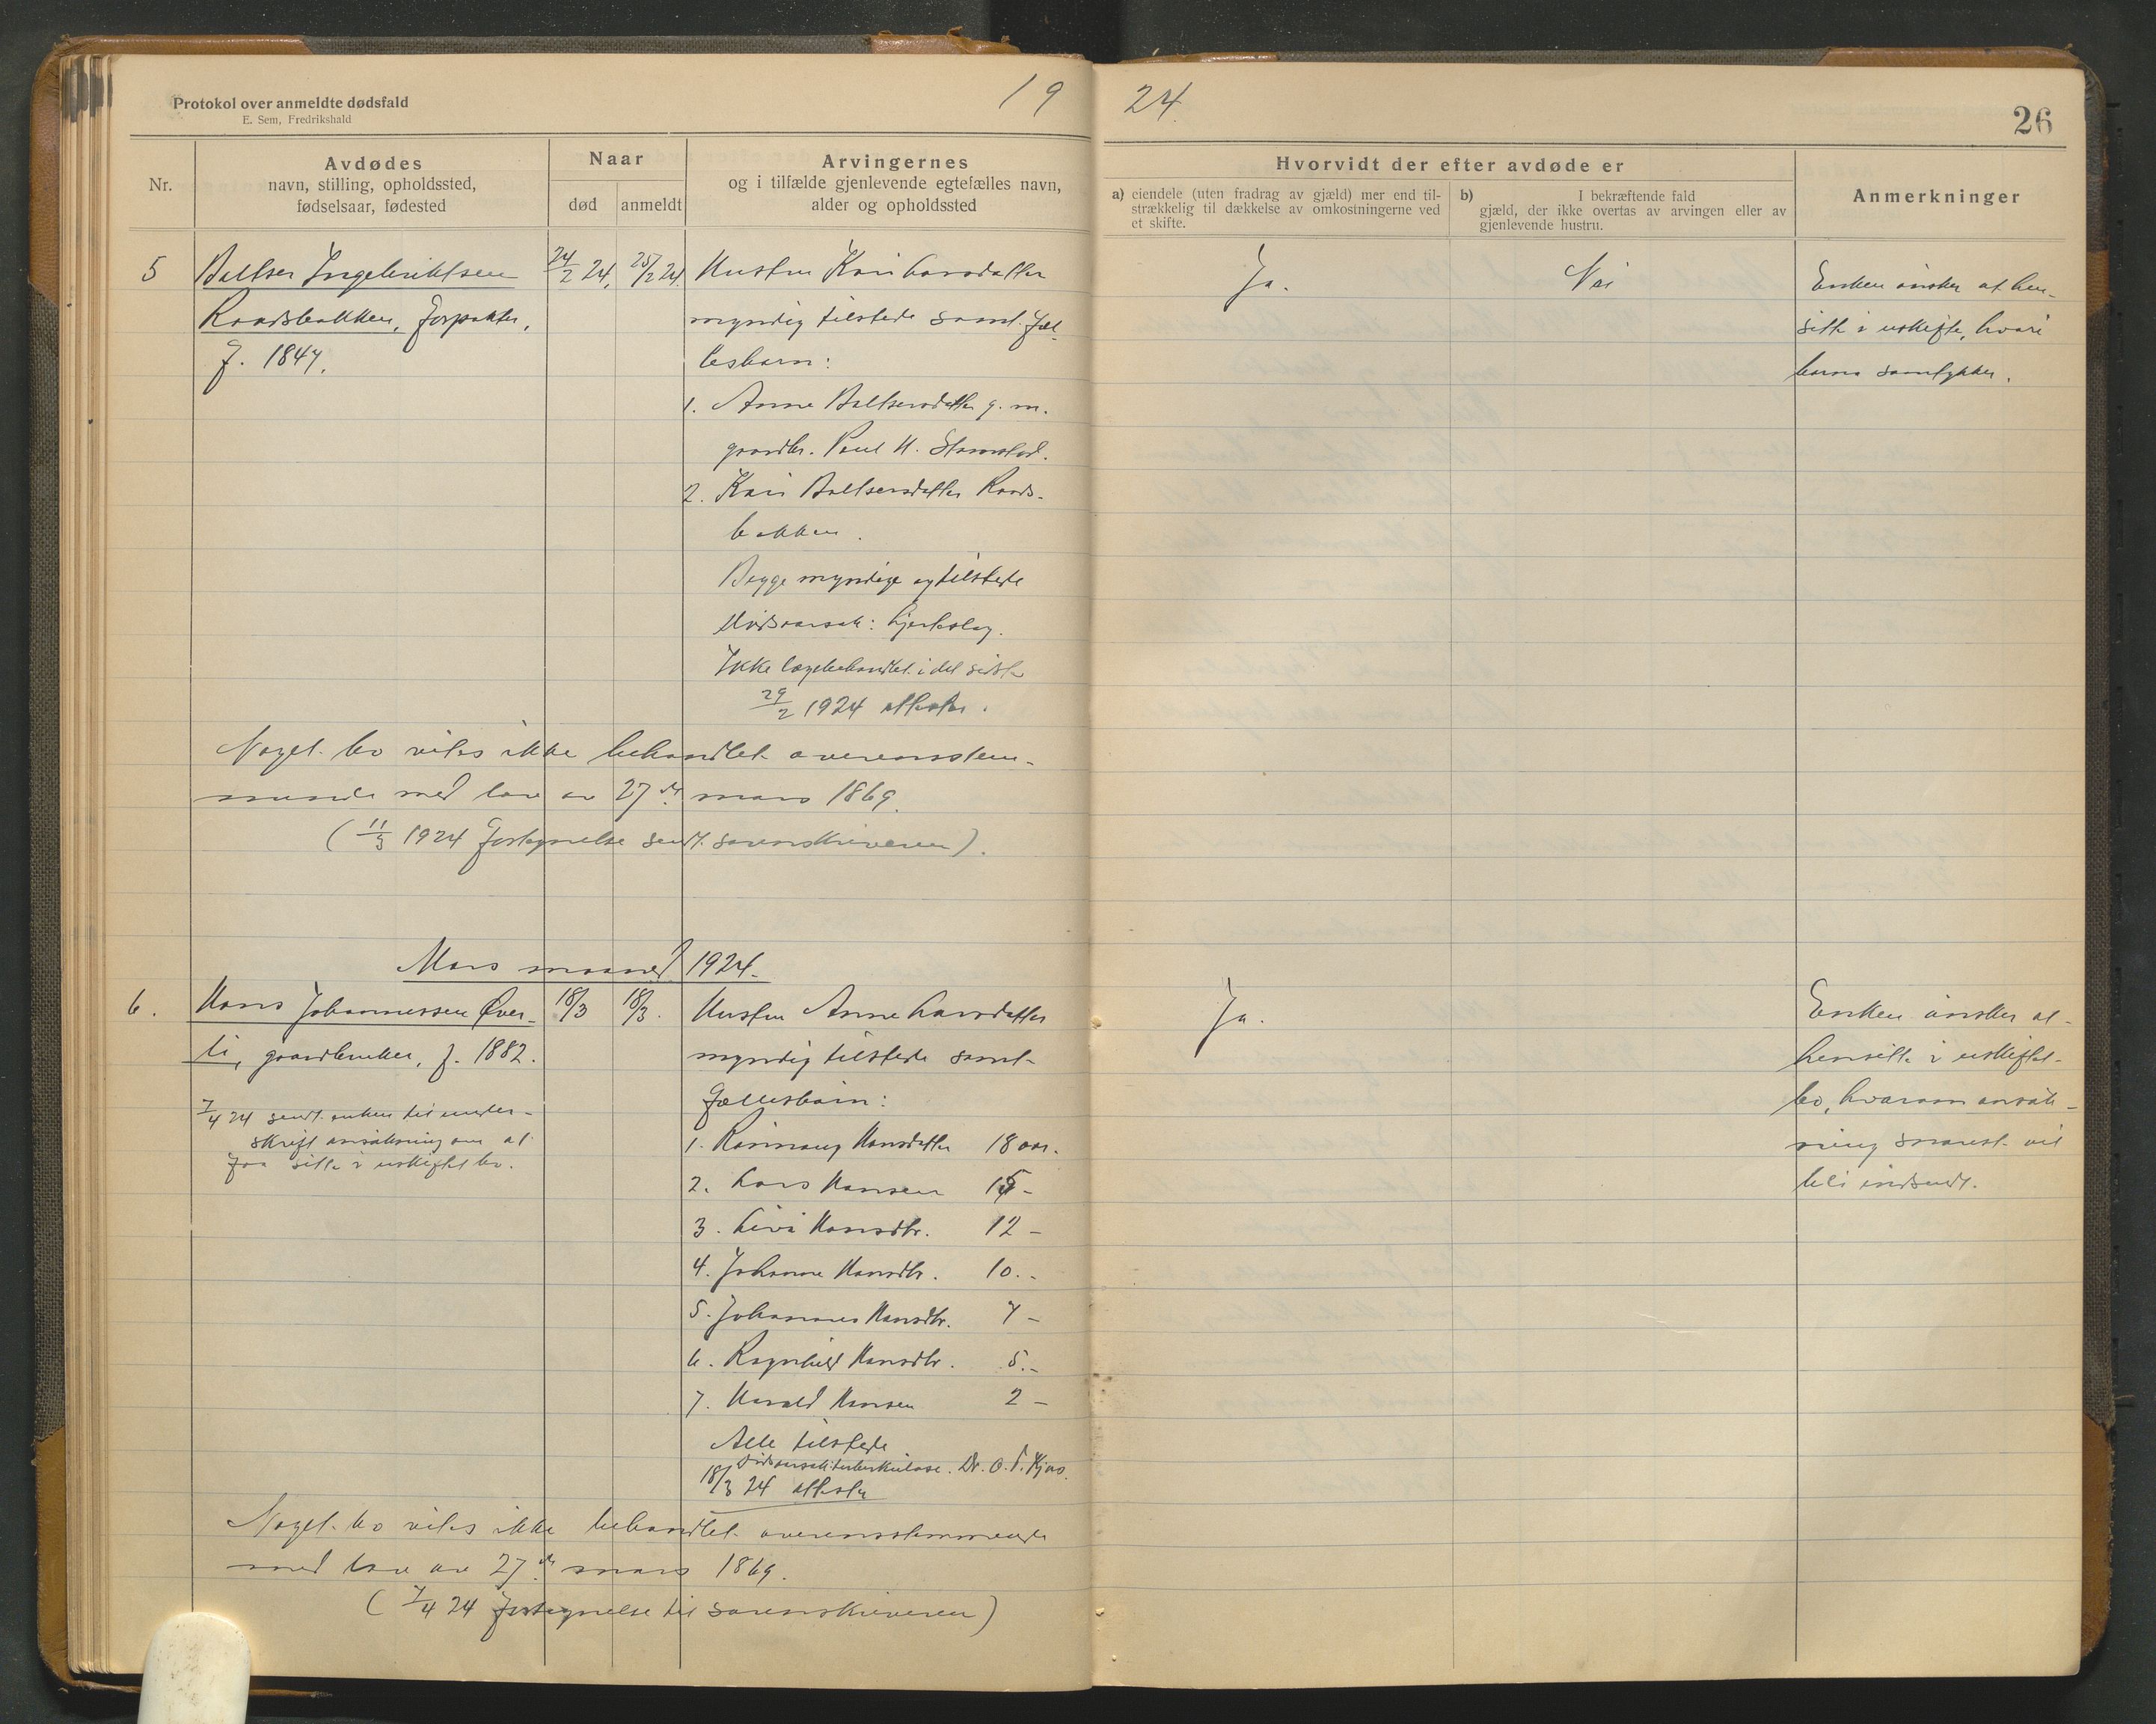 Protokol over anmeldte dødsfald
E. Sem, Fredrikshald
19 24.
26
Nr.
Avdødes
navn, stilling, opholdssted,
fødselsaar, fødested
Naar
død
anmeldt
Arvingernes
og i tilfælde gjenlevende egtefælles navn,
alder og opholdssted
Hvorvidt der efter avdøde er
a) eiendele (uten fradrag av gjæld) mer end til-
strækkelig til dækkelse av omkostningerne ved
et skifte.
b) I bekræftende fald
gjæld, der ikke overtas av arvingen eller av
gjenlevende hustru.
Anmerkninger
5 Baltser Ingebriktsen 24/2 24. 25/2 24. Hustru Kari Larsdatter Ja. Nei Enken ønsker at hen-
Raadsbakken, forpakter, myndig tilstede samt fæl- sitte i uskifte, hvori
f. 1847. lesbarn: barna samtykker.
1. Anne Baltsersdatter g. m.
gaardbr. Paul H. Stamstad.
2. Kari Baltsersdatter Raads-
bakken.
Begge myndige og tilstede
Dødsaarsak: hjerteslag.
Ikke lægebehandlet i det sidste
29/2 1924 attester.
Noget bo vites ikke behandlet overensstem-
mende med lov av 27de mars 1869.
(11/3 1924 fortegnelse sendt sorenskriveren).
Mars maaned 1924.
6. Hans Johannessen Øver- 18/3 18/3. Hustru Anne Larsdatter Ja. Enken ønsker at
li, gaardbruker, f. 1882. myndig tilstede samt hensitte i uskiftet
fællesbarn: bo, hvorom ansøk-
7/4 24 sendt enken til under-
skrift ansøkning om at
faa sitte i uskiftet bo.
1. Rønnaug Hansdatter 18 aar. ning snarest vil
2. Lars Hansen 15 - bli indsendt.
3. Livi Hansdtr. 12 -
4. Johanne Hansdtr. 10. -
5. Johannes Hansdtr. 7 -
6. Ragnhild Hansdtr. 5. -
7. Harald Hansen 2 -
Alle tilstede
Dødsaarsak: tuberkulose. Dr. O. F.
18/3 24 attester
Noget bo vites ikke behandlet overensstemmende
med lov av 27de mars 1869.
(7/4 24 fortegnelse til sorenskriveren)